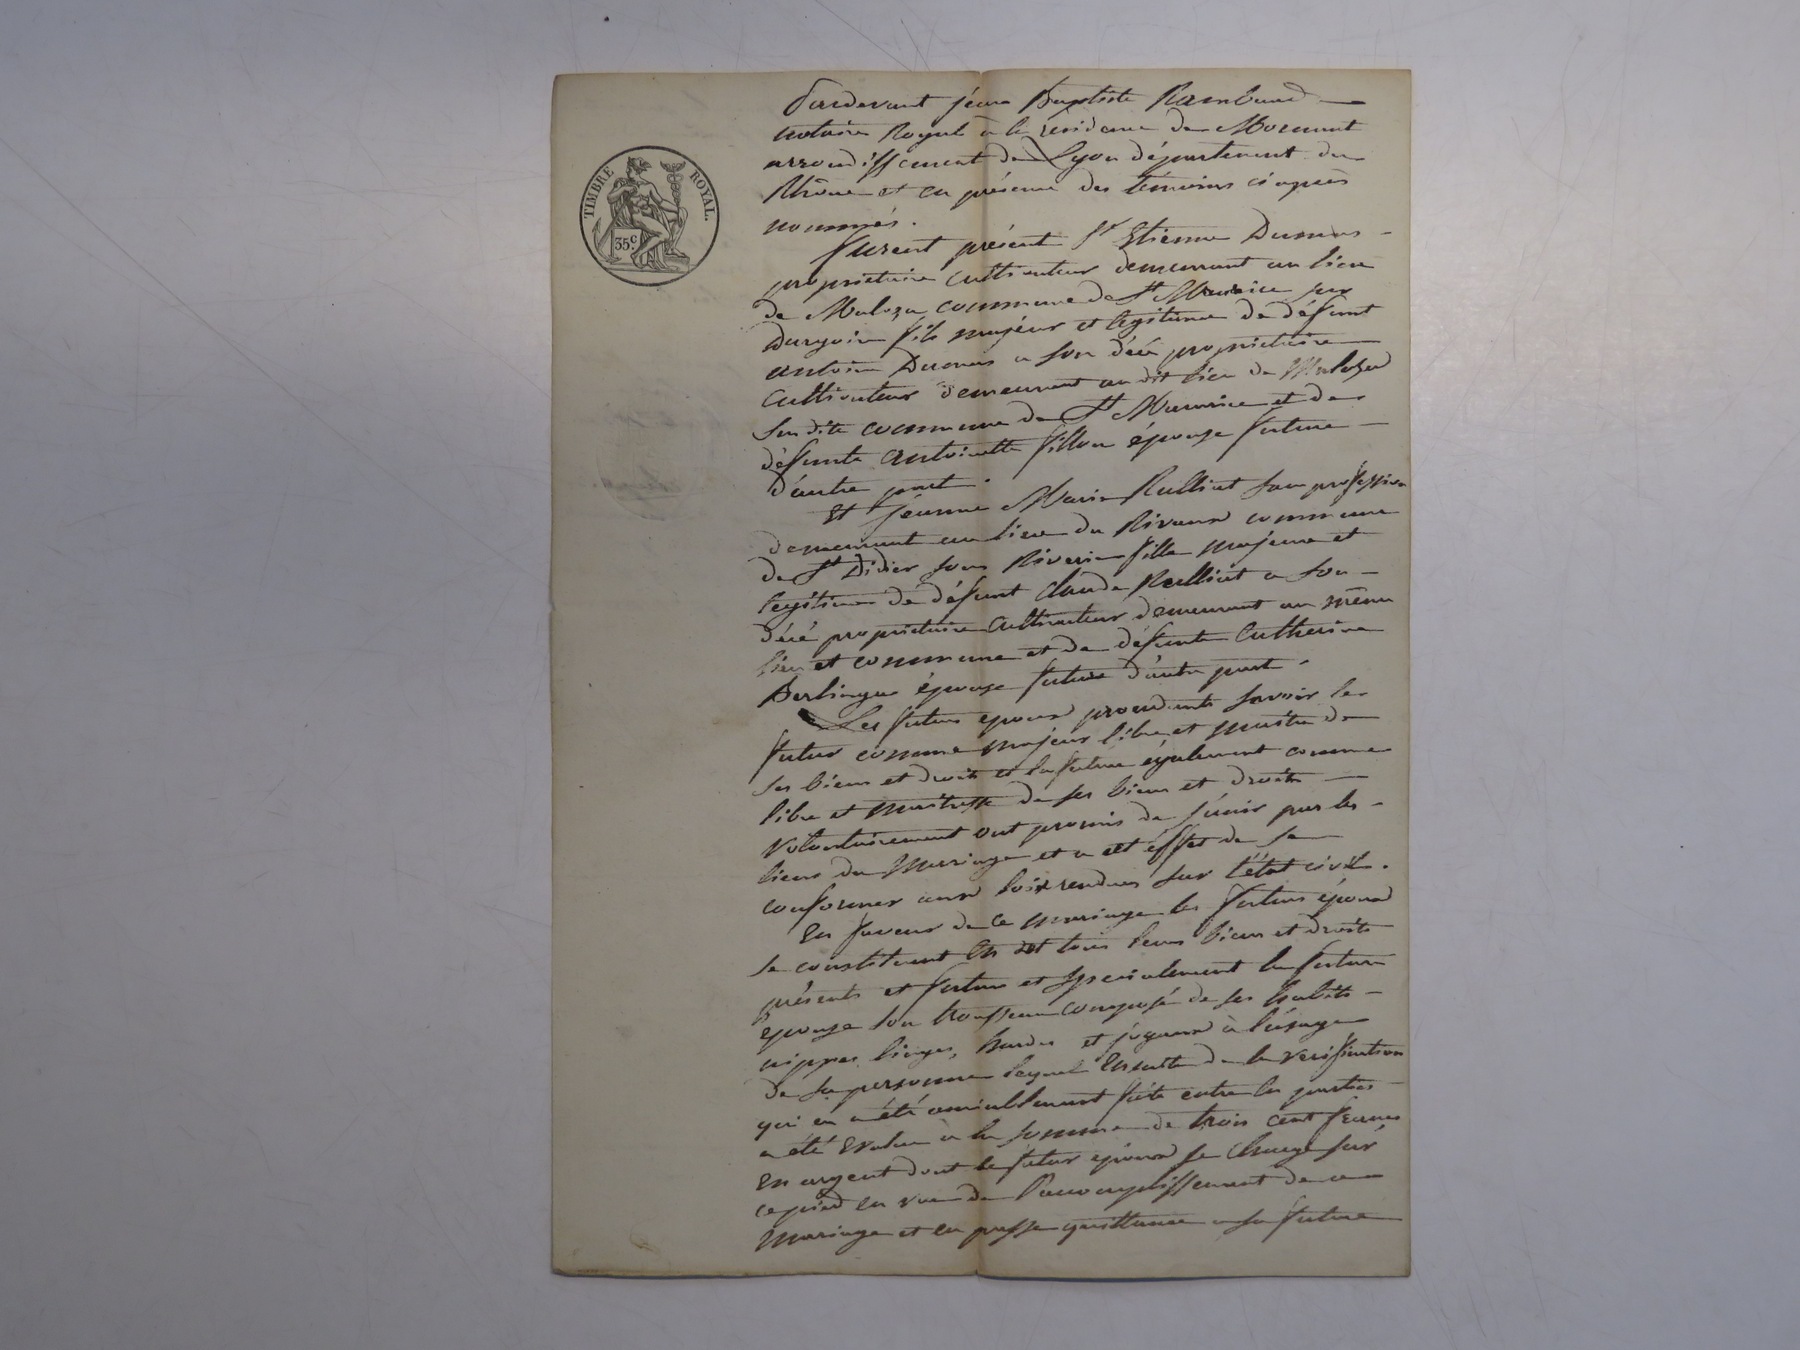 TIMBRE ROYAL.
35c.
Pardevant jean Baptiste Rambaud
notaire Royal à la résidence de Mornant
arrondissement de Lyon département du
Rhône et en présence des témoins ciaprès
nommés.
furent présent Sr Etienne Dumas
propriétaire cultivateur demeurant au lieu
de Maloza commune de St Maurice sur
Dargoire fils majeur et legitime de défunt
antoine Dumas a son décé propriétaire
cultivateur demeurant au dit lieu de Maloza
susdite commune de St Maurice et de
défunte antoinette fillon épouse future
d'autre part.
Et jeanne Marie Rulliat sans profession
demeurant au lieu du Rivaud commune
de St Didier sous Riverie fille majeure et
legitime de défunt Claude Rulliat a son
décé propriétaire cultivateur demeurant au même
lieu et commune et de défunte Catherine
épouse future d'autre part.
Les futurs epoux procedants savoir le
futur comme majeur libre et maitre de
ses biens et droits et la future également comme
libre et maitresse de ses biens et droits
volontairement ont promis de s'unir par les
liens du Mariage et a cet éffet de se
conformer aux loix rendues sur l'état civil.
En faveur de ce mariage les futurs époux
se constituent En dot tous leurs biens et droits
présents et futurs et specialement la future
epouse son trousseau composé de ses habits
nippes linges, hardes et joyaux à l'usage
de sa personne lequel Ensuite de la verification
qui en a été amiablement faite entre les parties
a été Evalué à la somme de trois cent francs
En argent dont le futur epoux se charge sur
ce pied en vue de l'accomplissement de ce
Mariage et en passe quittance a sa future